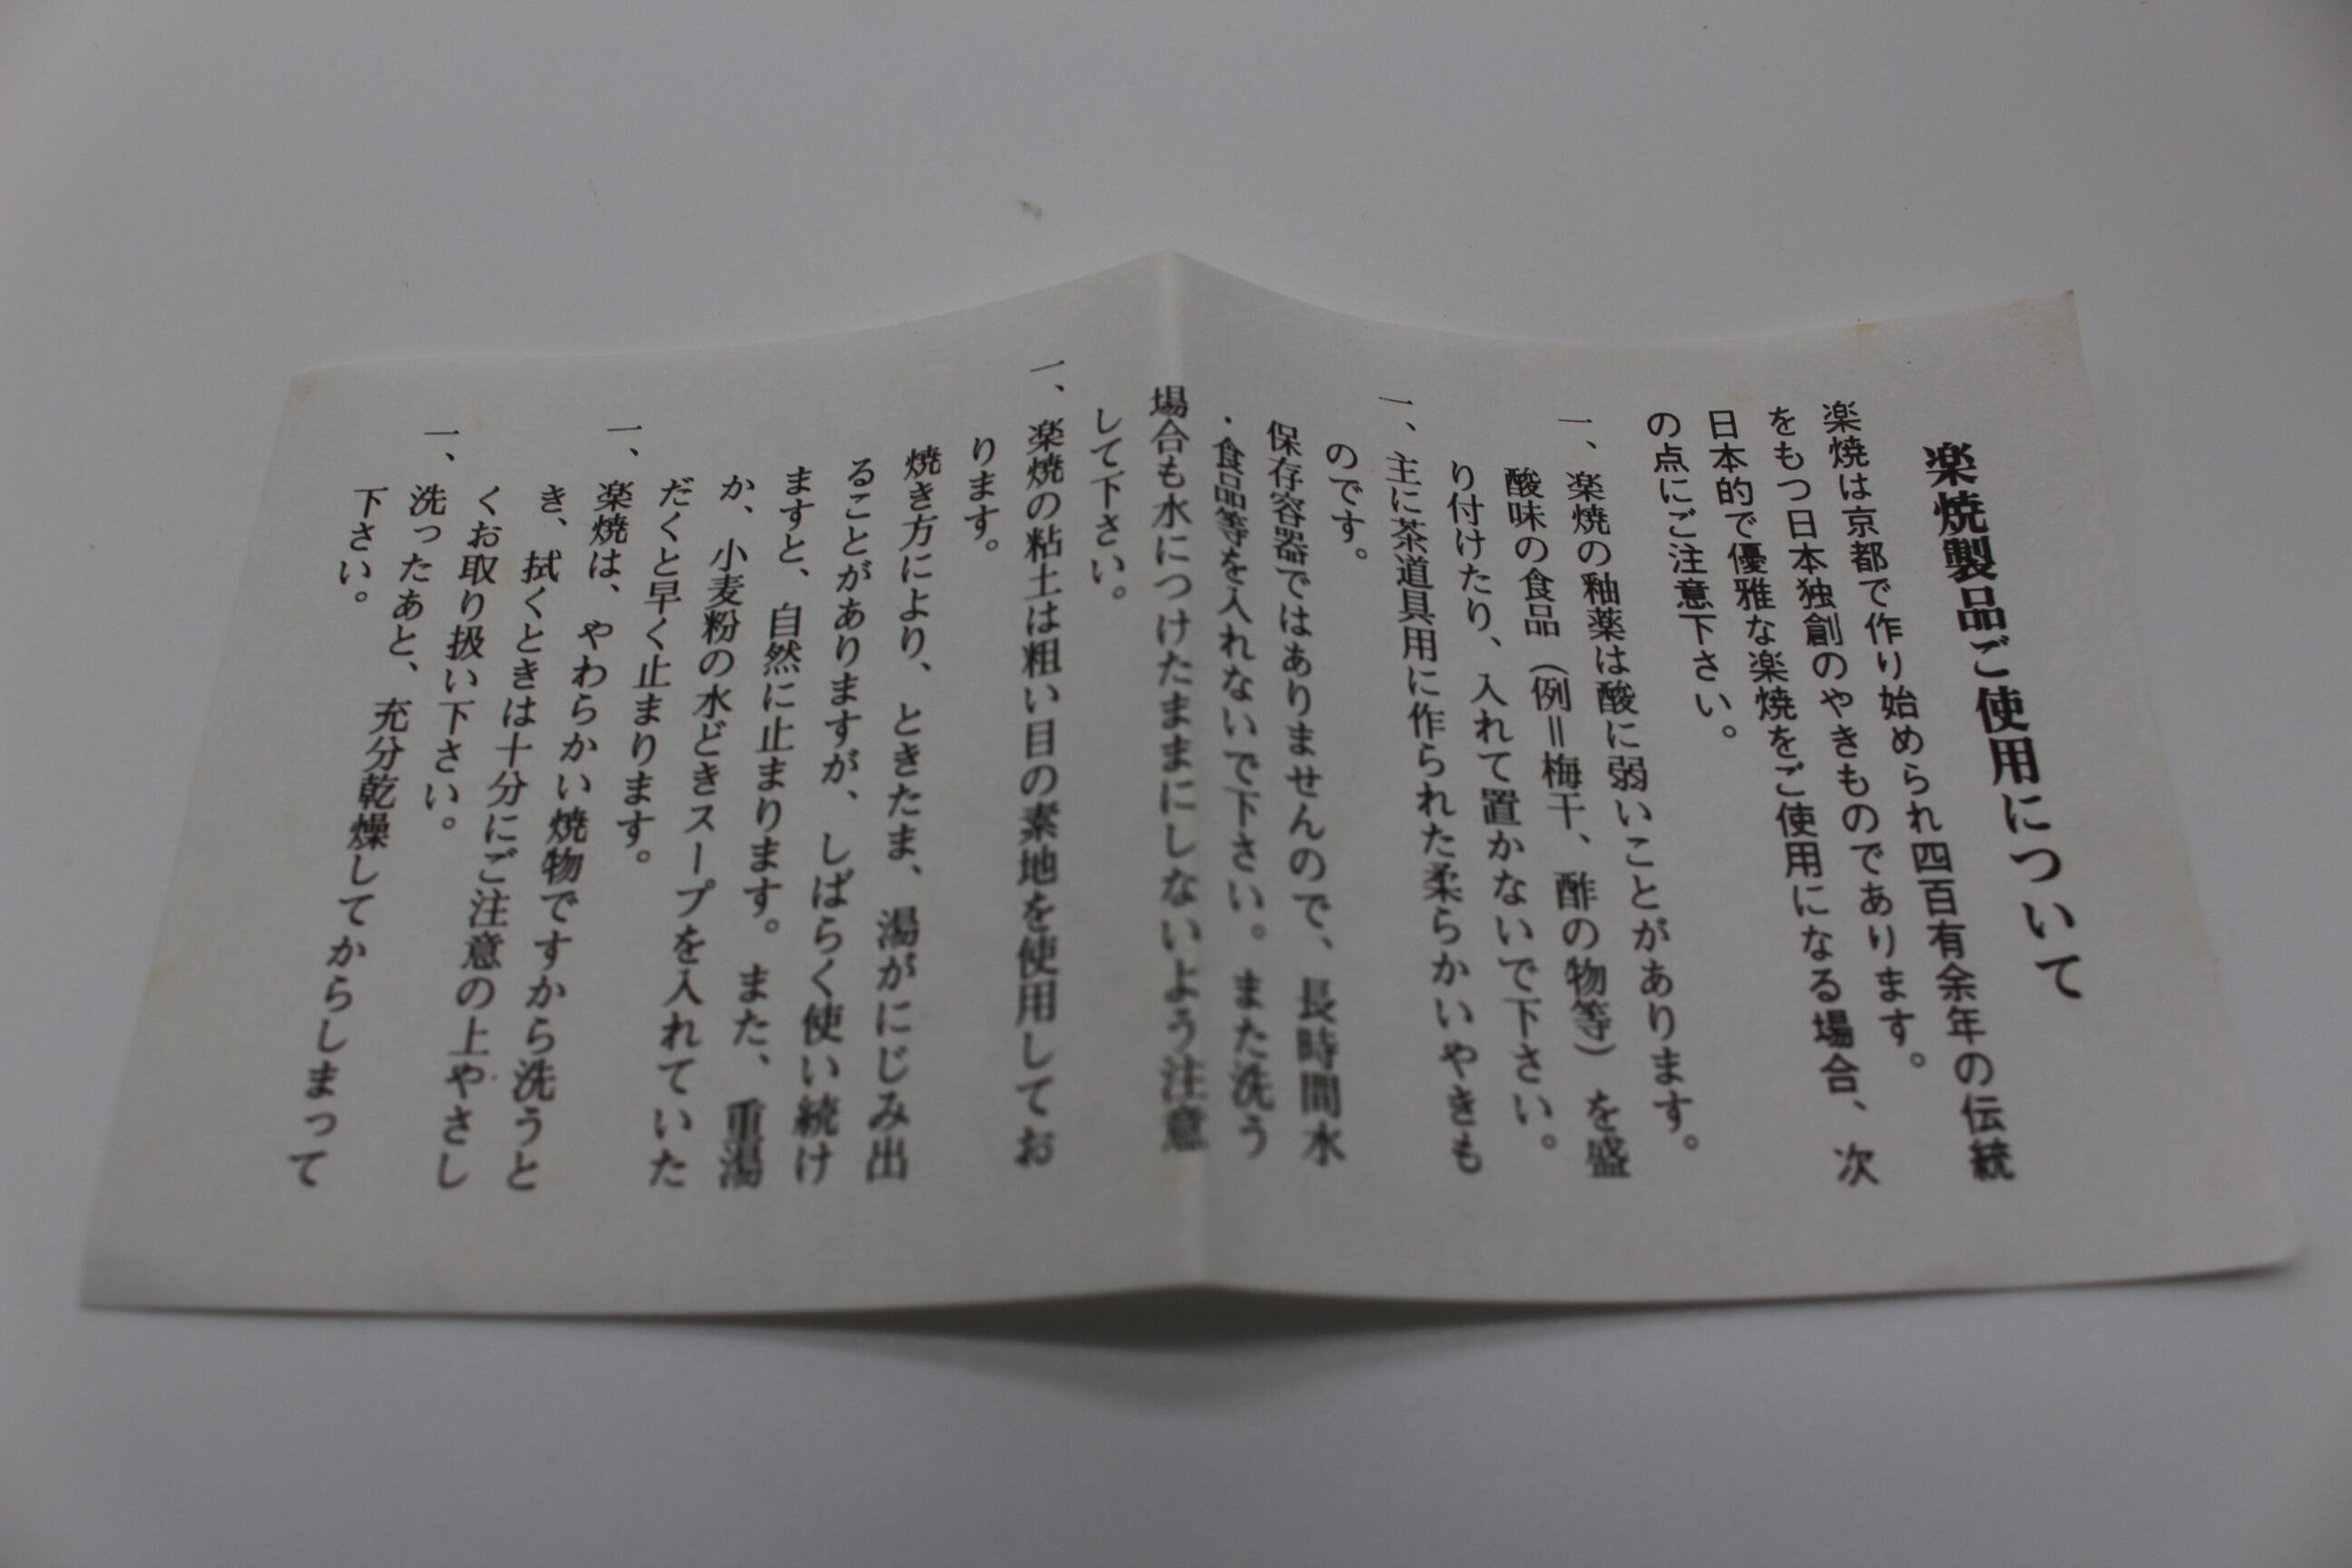 楽焼製品ご使用について
楽焼は京都で作り始められ四百有余年の伝統
をもつ日本独創のやきものであります。
日本的で優雅な楽焼をご使用になる場合、次
の点にご注意下さい。
一、楽焼の釉薬は酸に弱いことがあります。
酸味の食品（例＝梅干、酢の物等）を盛
り付けたり、入れて置かないで下さい。
一、主に茶道具用に作られた柔らかいやきも
のです。
保存容器ではありませんので、長時間水
・食品等を入れないで下さい。また洗う
場合も水につけたままにしないよう注意
して下さい。
一、楽焼の粘土は粗い目の素地を使用してお
ります。
焼き方により、ときたま、湯がにじみ出
ることがありますが、しばらく使い続け
ますと、自然に止まります。また、重湯
か、小麦粉の水どきスープを入れていた
だくと早く止まります。
一、楽焼は、やわらかい焼物ですから洗うと
き、拭くときは十分にご注意の上やさし
くお取り扱い下さい。
一、洗ったあと、充分乾燥してからしまって
下さい。